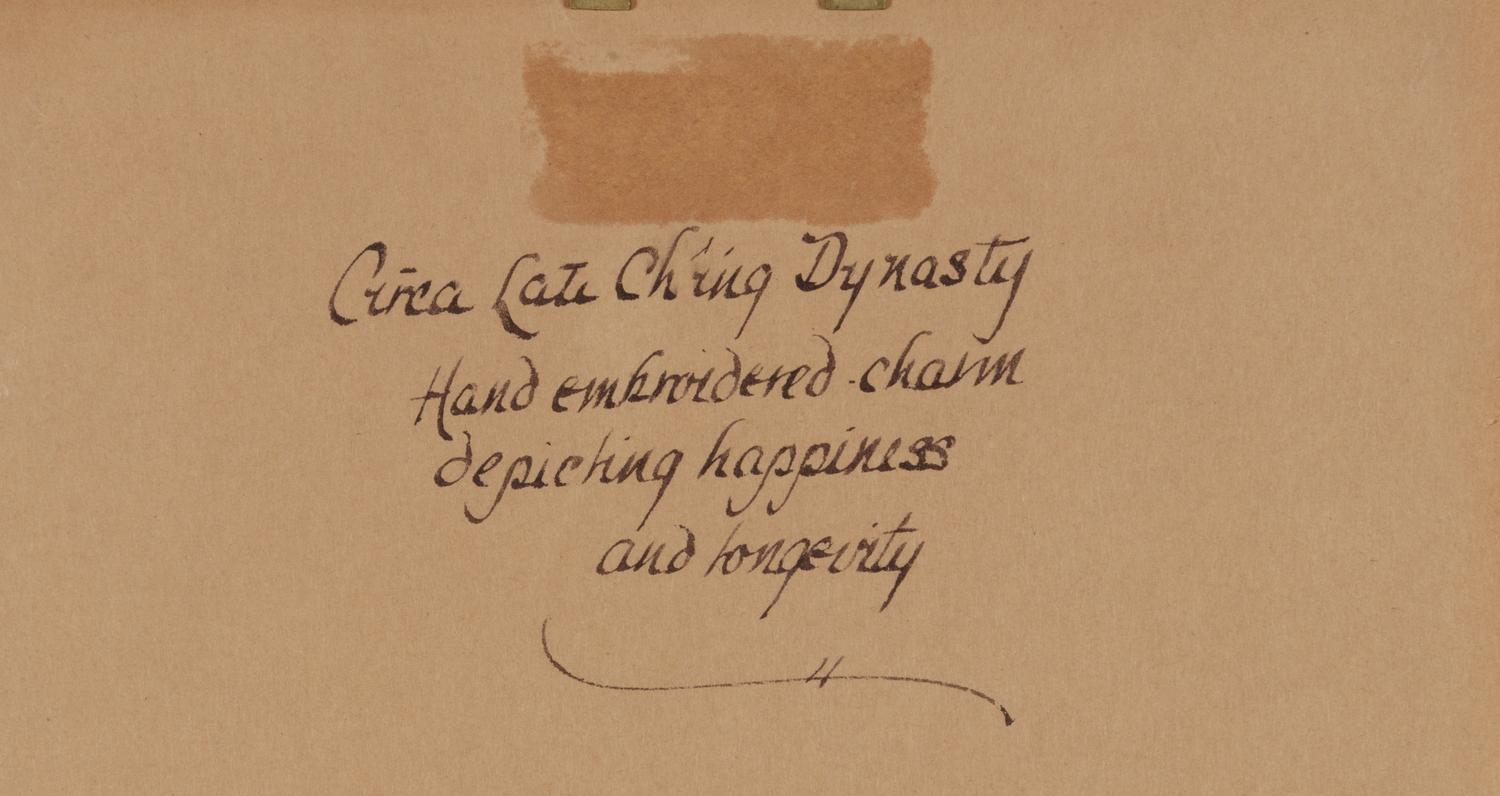 Circa Late Ch'ing Dynasty
Hand embroidered charm
depicting happiness
and longevity